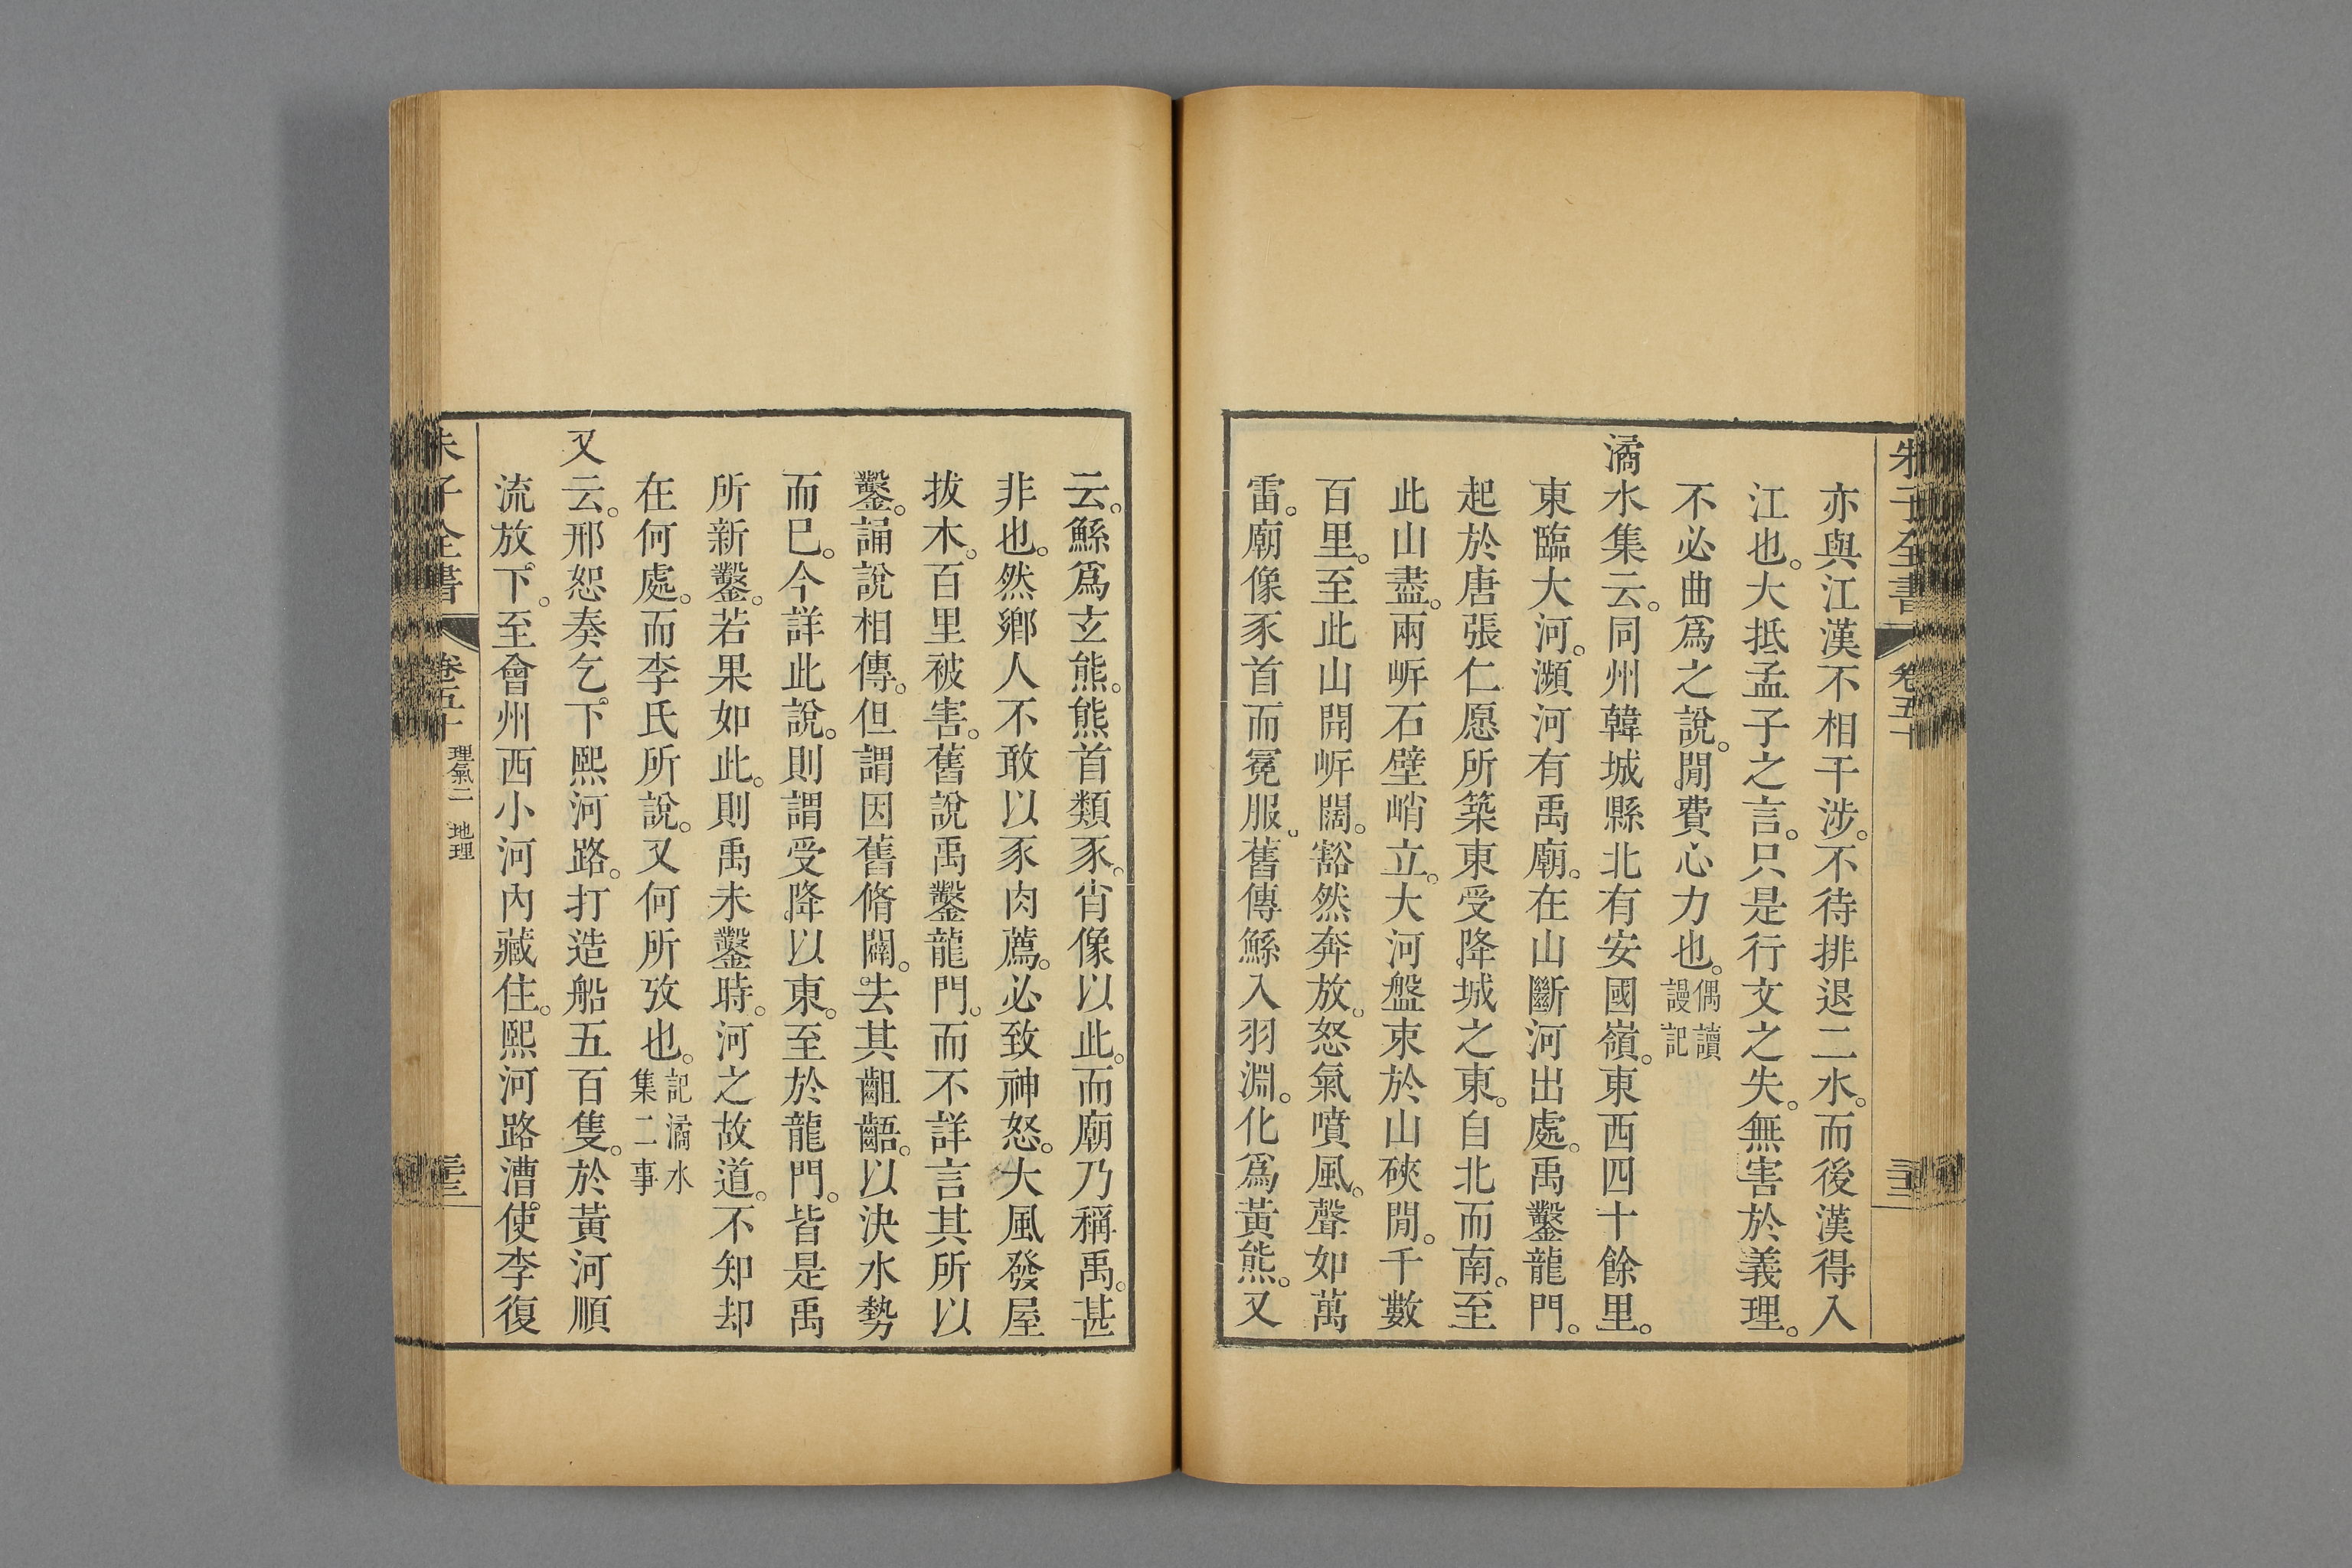 朱子全書 卷五十 三十三
亦與江漢不相干涉。不待排退二水。而後漢得入
江也。大抵孟子之言。只是行文之失。無害於義理。
不必曲爲之說。閒費心力也。偶讀謾記
潏水集云。同州韓城縣北有安國嶺。東西四十餘里。
東臨大河。瀕河有禹廟。在山斷河出處。禹鑿龍門。
起於唐張仁愿所築東受降城之東。自北而南。至
此山盡。兩岸石壁峭立。大河盤束於山硤閒。千數
百里。至此山開岸闊。豁然奔放。怒氣噴風。聲如萬
雷。廟像豕首而冕服。舊傳鯀入羽淵。化爲黃熊。又
云。鯀爲玄熊。熊首類豕。肖像以此。而廟乃稱禹。甚
非也。然鄉人不敢以豕肉薦。必致神怒。大風發屋
拔木。百里被害。舊說禹鑿龍門。而不詳言其所以
鑿。誦說相傳。但謂因舊脩闢。去其齟齬。以決水勢
而已。今詳此說。則謂受降以東。至於龍門。皆是禹
所新鑿。若果如此。則禹未鑿時。河之故道。不知却
在何處。而李氏所說。又何所攷也。記潏水集二事
又云。邢恕奏乞。下熙河路。打造船五百隻。於黃河順
流放下。至會州西小河內藏住。熙河路漕。使李復
朱子全書 卷五十 理氣二 地理 三十三